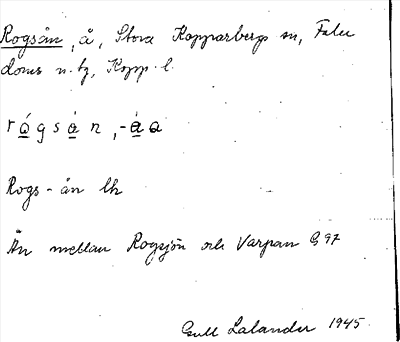 Rogsån, å, Stora Kopparbergs sn, Falu
doms n. tz, Kopp. l.
rógsån, -åa
Rogs-ån lh
Ån mellan Rogsjön och Varpan G 97
Gull Lalander 1945.